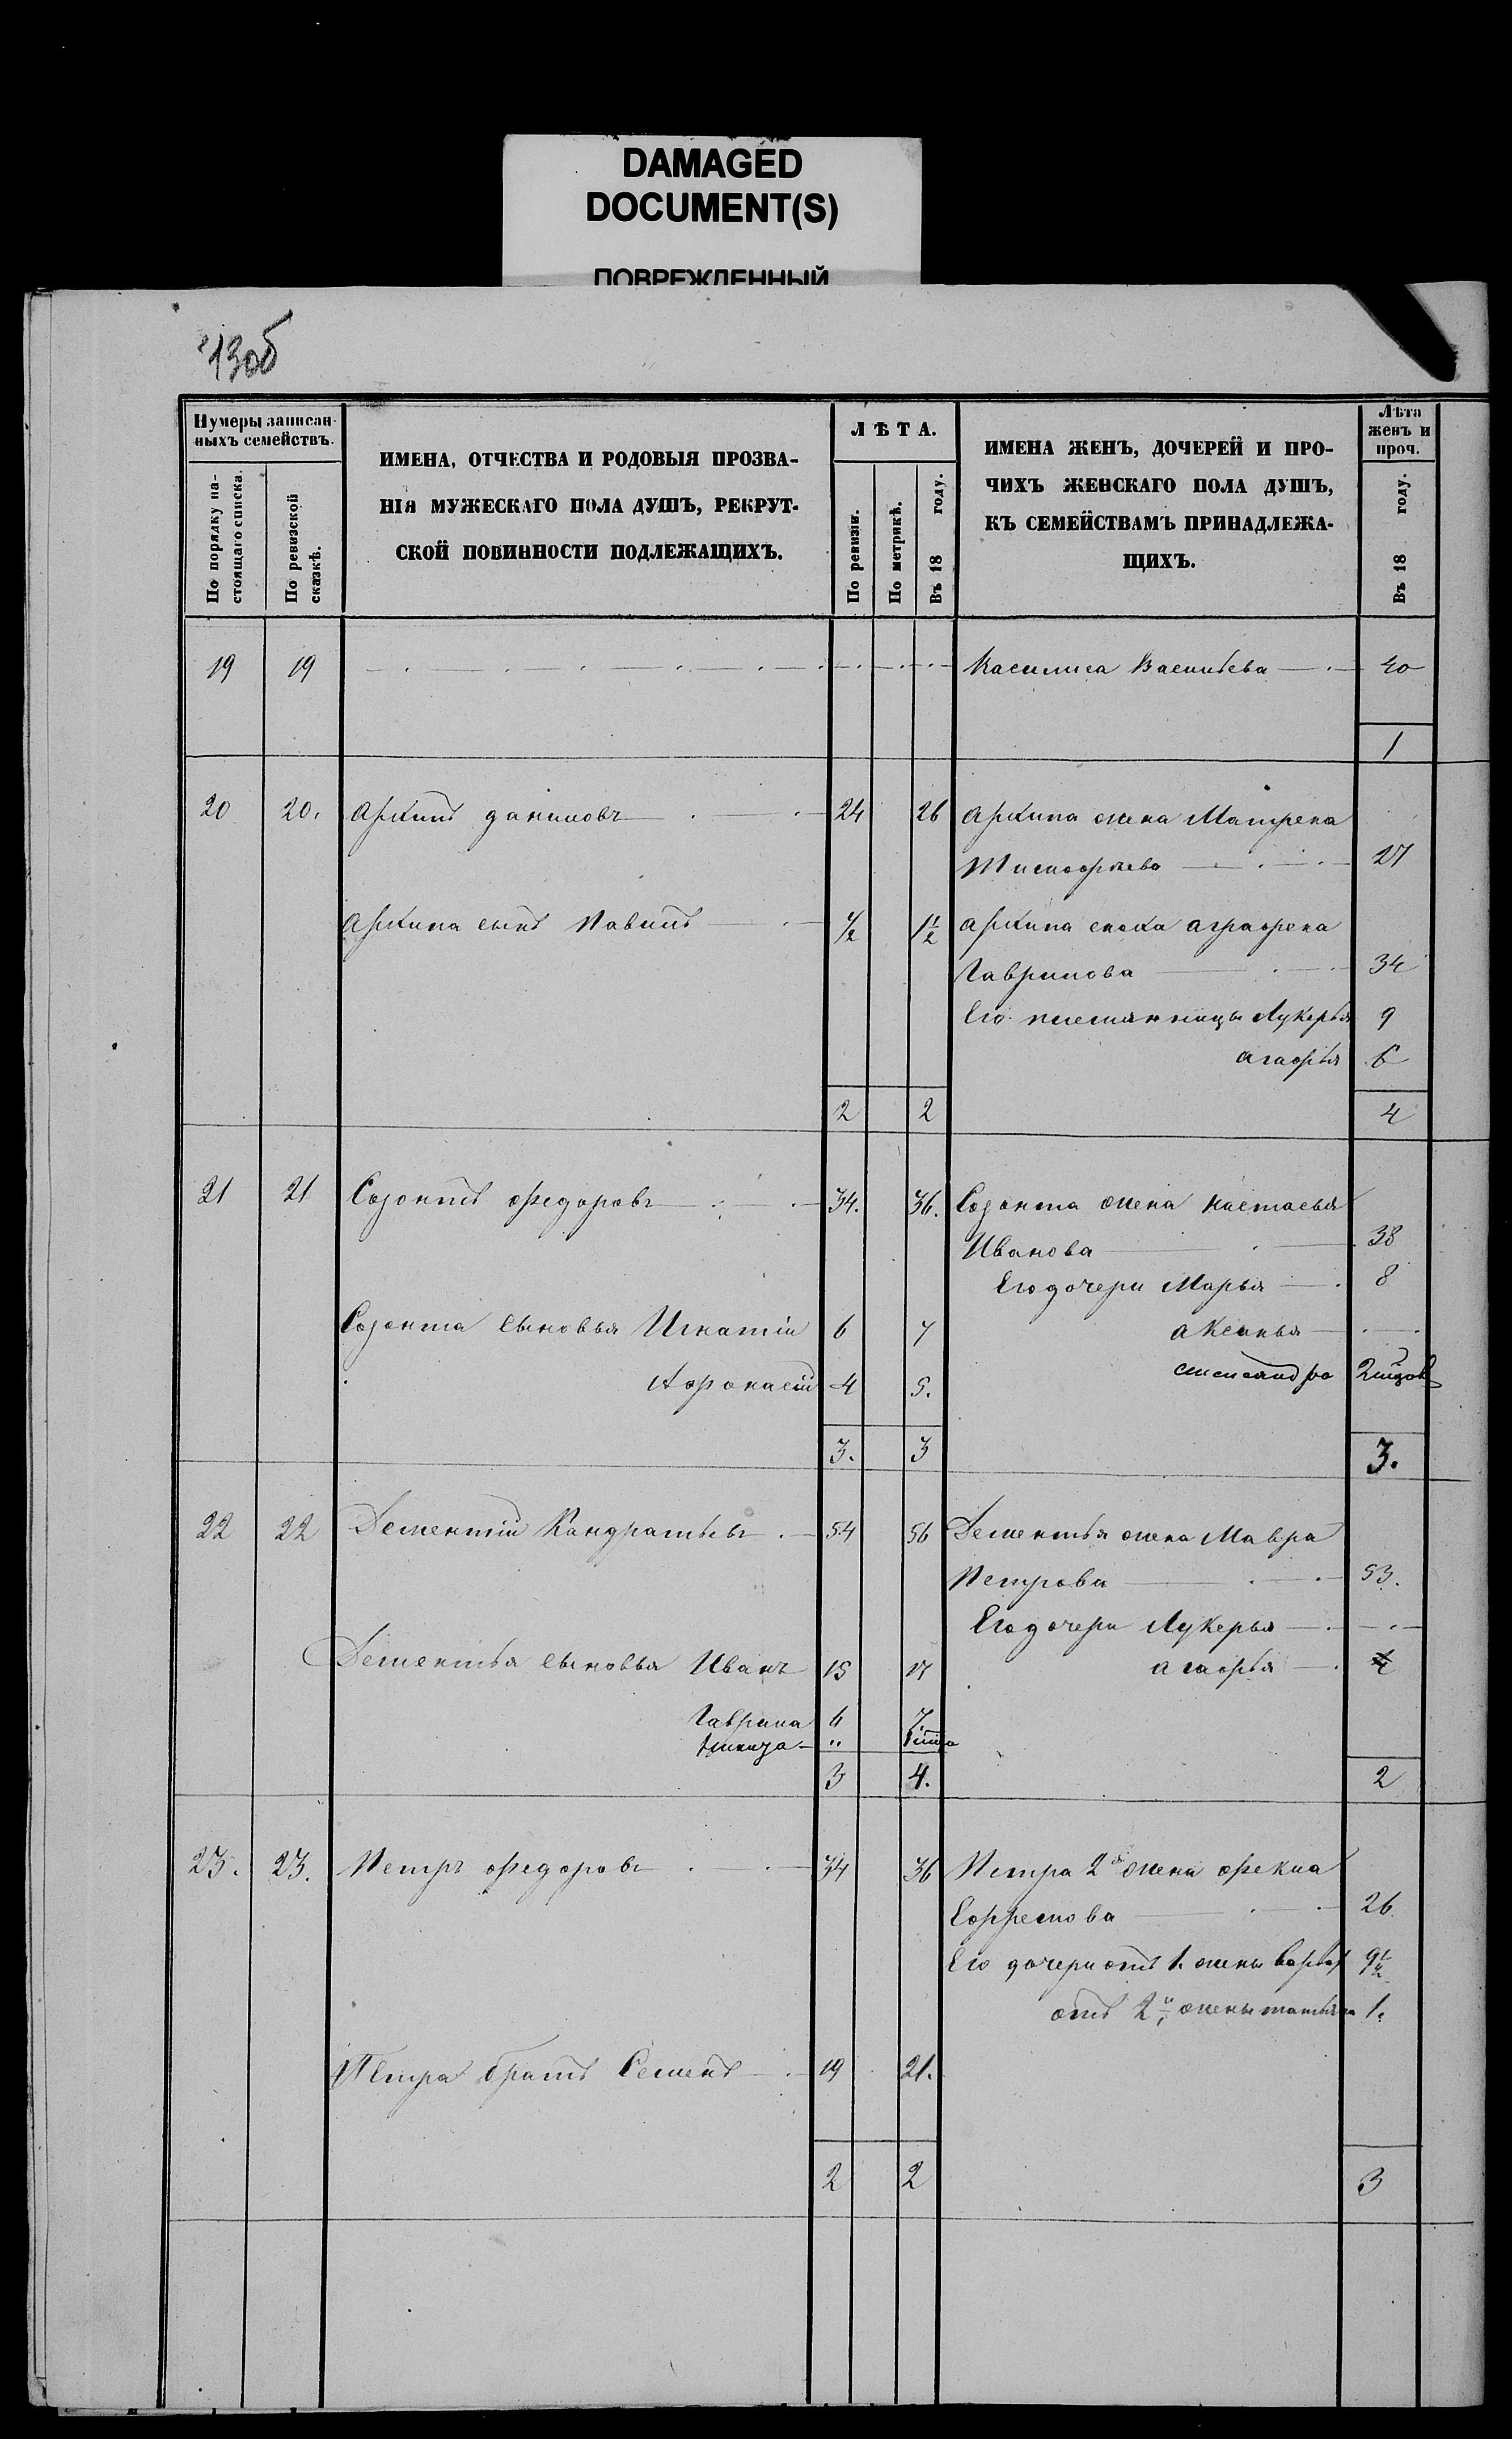 DAMAGED
DOCUMENT(S)
ПОВРЕЖДЕННЫЙ
13об
Нумеры записан-
ныхъ семействъ.
По порядку на-
стоящаго списка.
По ревизской
сказкѣ.
ИМЕНА, ОТЧЕСТВА И РОДОВЫЯ ПРОЗВА-
НІЯ МУЖЕСКАГО ПОЛА ДУШЪ, РЕКРУТ-
СКОЙ ПОВИННОСТИ ПОДЛЕЖАЩИХЪ.
ЛѢТА.
По ревизіи.
По метрикѣ.
Въ 18 году.
ИМЕНА ЖЕНЪ, ДОЧЕРЕЙ И ПРО-
ЧИХЪ ЖЕНСКАГО ПОЛА ДУШЪ,
КЪ СЕМЕЙСТВАМЪ ПРИНАДЛЕЖА-
ЩИХЪ.
Лѣта
женъ и
проч.
Въ 18 году.
19 19 Василиса Васильева 40
1
20 20. Архипъ Даниловъ 24 26 Архипа жена Матрена
Тимофѣева 27
Архипа сынъ Павилъ 1/2 1 1/2 Архипа сноха Аграфена
Гаврилова 34
Его племянницы Лукерья 9
Агафья 6
2 2 4
21 21 Созонтъ Федоровъ 34. 36. Созонта жена Настасья
Иванова 38
Его дочери Марья 8
Созонта сыновья Игнатій 6 7 Аксинья
Афонасій 4 5.
3. 3 3.
22 22 Дементій Кандратьевъ 54 56 Дементья жена Мавра
Петрова 53.
Его дочери Лукерья
Дементья сыновья Иванъ 15 17 Агафья
Гаврила 6 7.
3 4. 2
23. 23. Петръ Федоровъ 34 36 Петра 2я жена Фекла
Ефремова 26
Его дочери отъ 1. жены Варвар 9 1/2
отъ 2й жены Татьяна 1.
Петра братъ Семенъ 19 21.
2 2 3